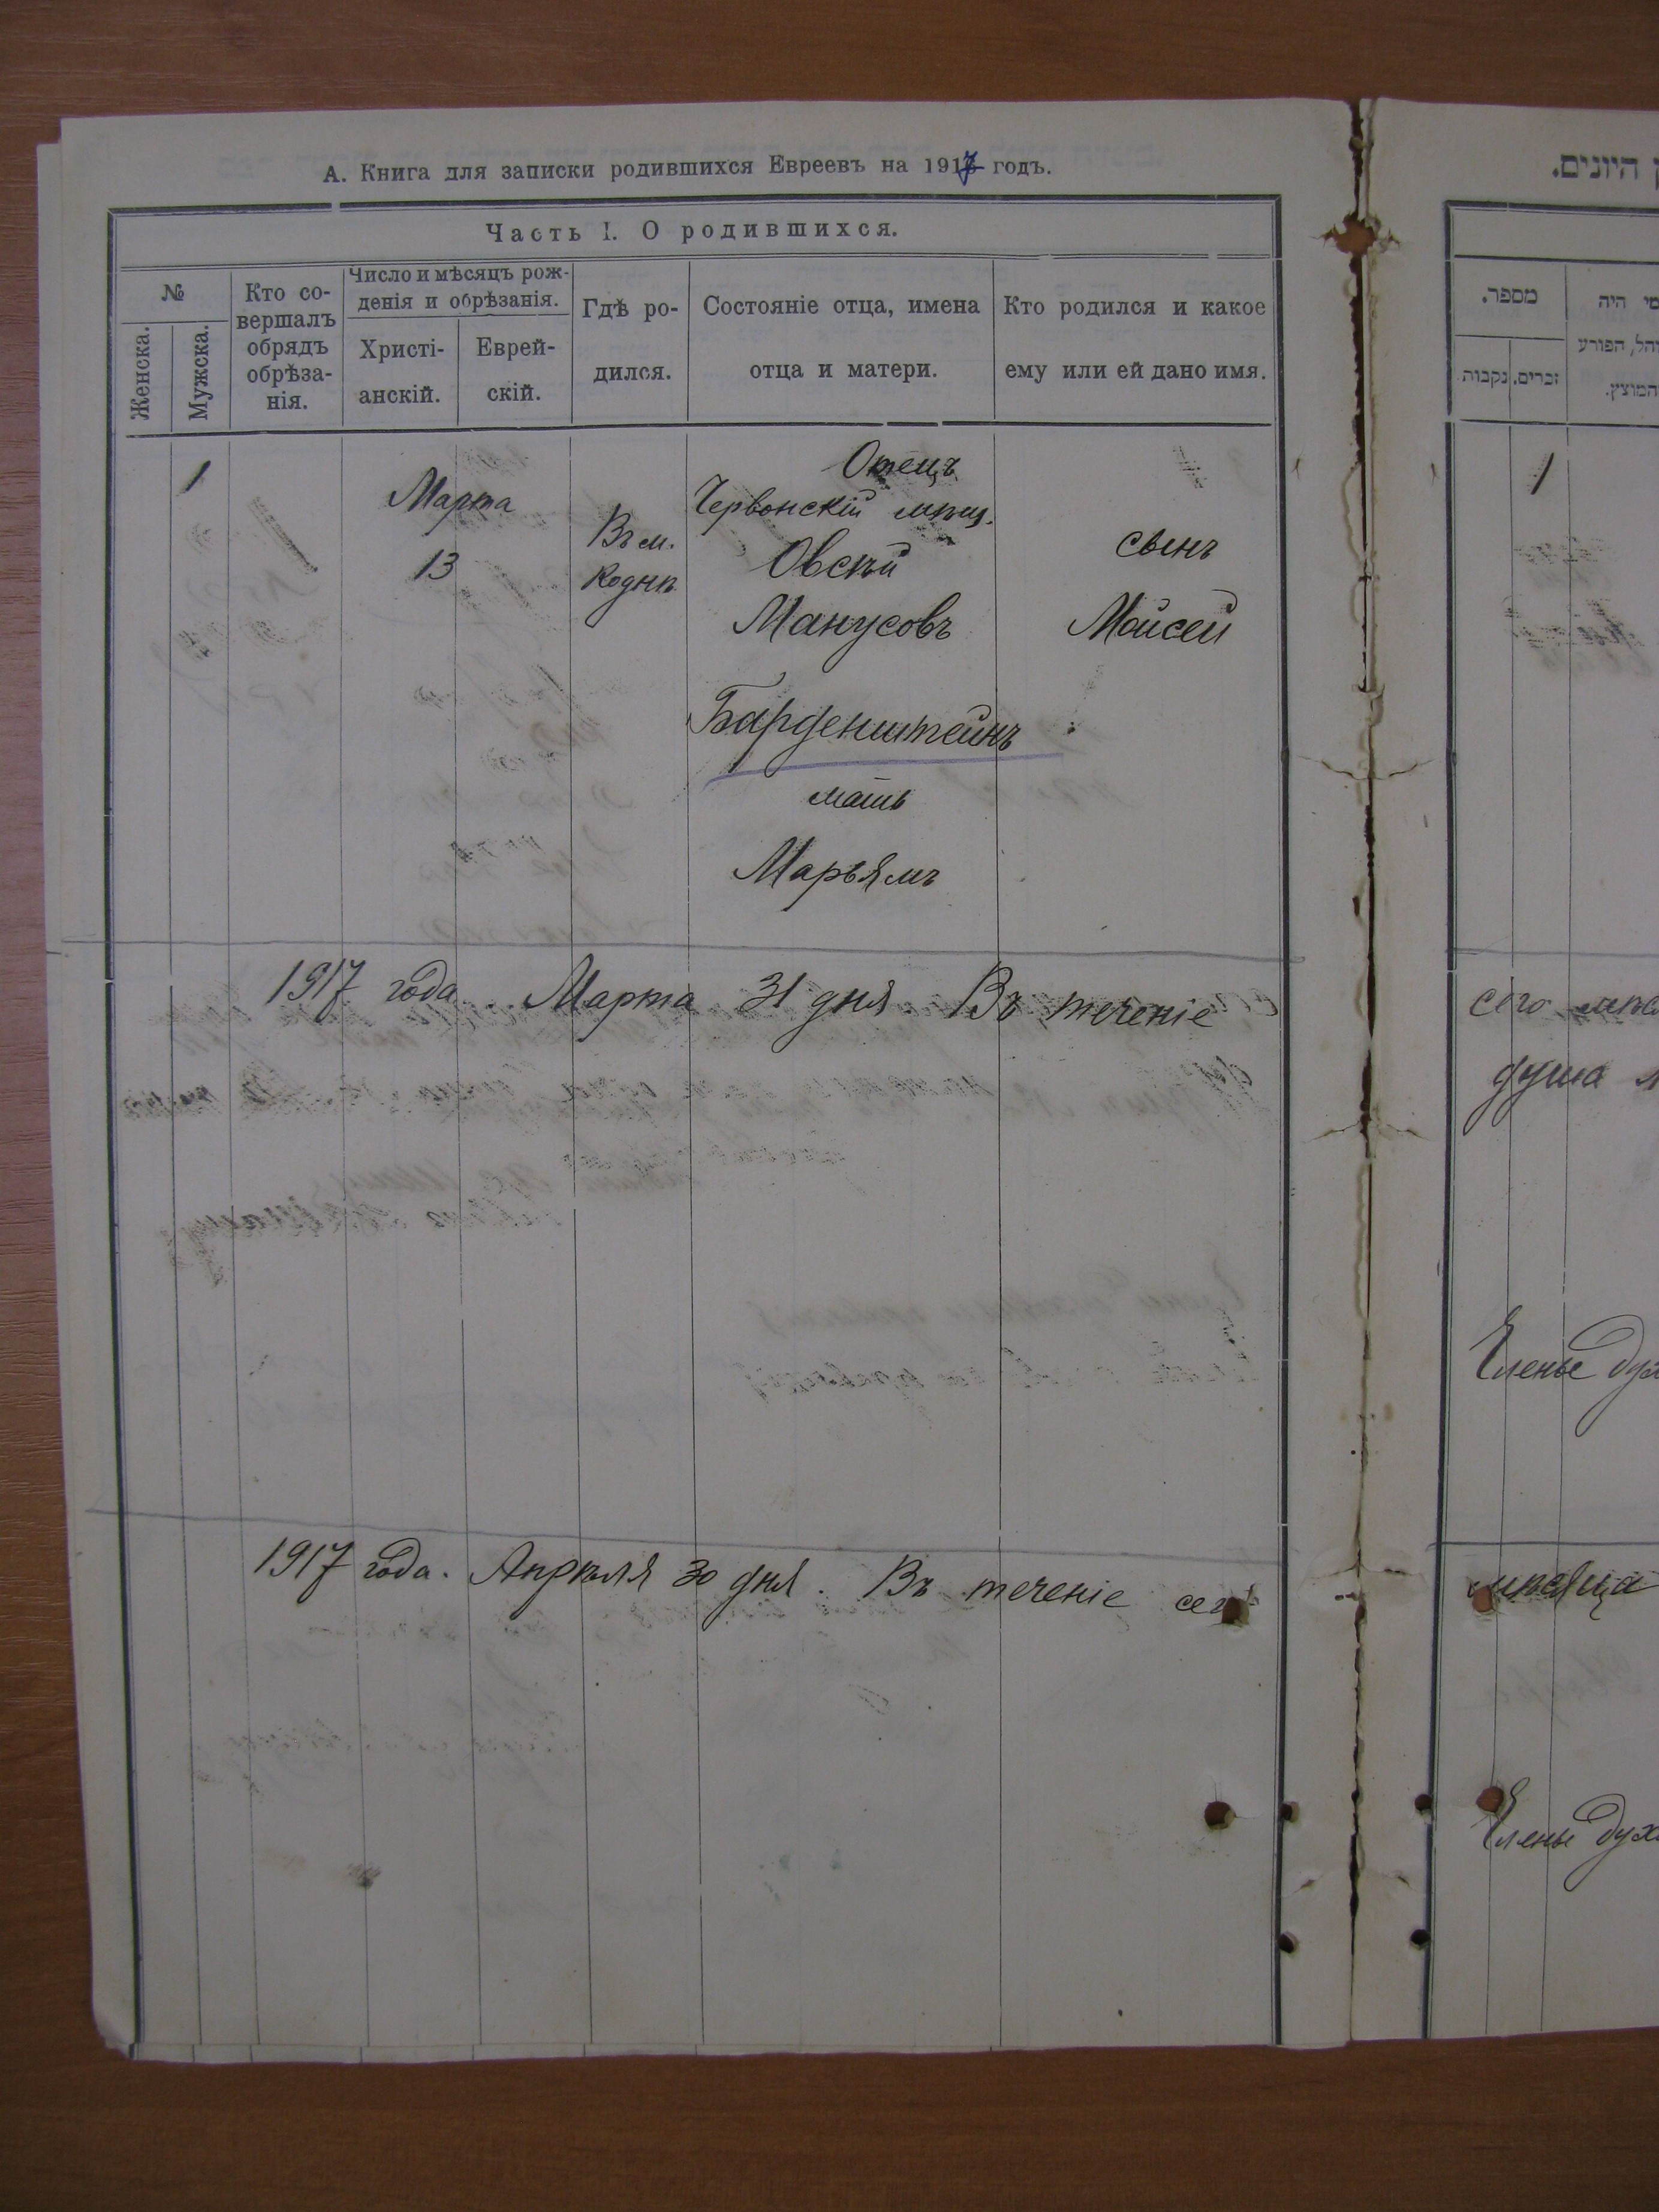 А. Книга для записки родившихся Евреевъ на 1917 годъ.
Часть I. О родившихся.
№
Женска.
Мужска.
Кто со-
вершалъ
обрядъ
обрѣза-
нія.
Число и мѣсяцъ рож-
денія и обрѣзанія.
Христі-
анскій.
Еврей-
скій.
Гдѣ ро-
дился.
Состояніе отца, имена
отца и матери.
Кто родился и какое
ему или ей дано имя.
1
Марта
13
Въ м.
Коднѣ
Отецъ
Червонскій мѣщ.
Овсѣй
Манусовъ
Барденштейнъ
мать
Марьямъ
сынъ
Мойсей
1917 года. Марта 31 дня Въ теченіе
1917 года. Апрѣля 30 дня. Въ теченіе сего
היונים.
מספר.
זכרים.
נקבות
מי היה
הפורע
המוצץ.
1
сего
душа
Члены
мѣсяца
Члены